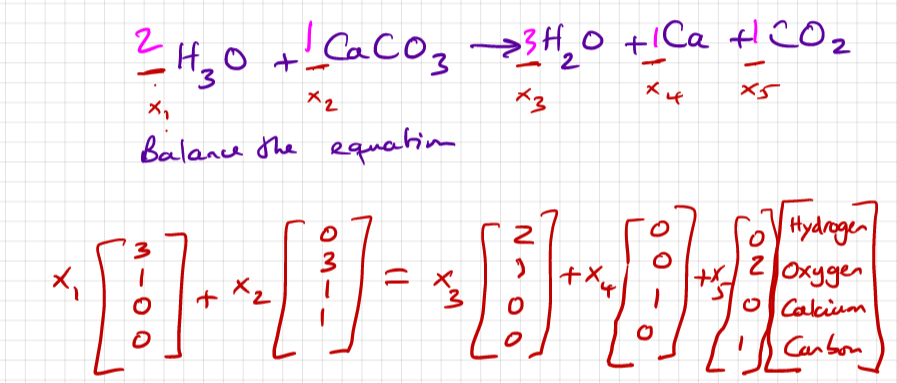 2 H₃O + 1 CaCO₃ → 3 H₂O + 1 Ca + 1 CO₂
x₁ x₂ x₃ x₄ x₅
Balance the equation
x₁ [3 1 0 0] + x₂ [0 3 1 1] = x₃ [2 1 0 0] + x₄ [0 0 1 0] + x₅ [0 2 0 1] [Hydrogen Oxygen Calcium Carbon]